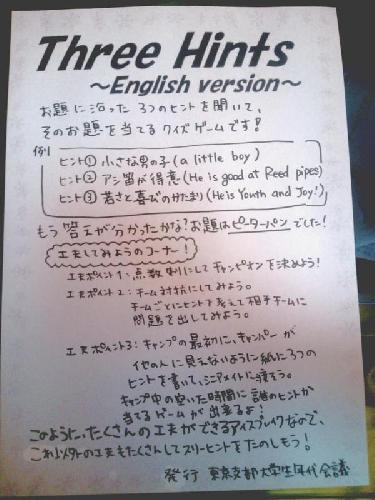 Three Hints
～English version～
お題に沿った3つのヒントを聞いて、
そのお題を当てるクイズゲームです!
例)
ヒント① 小さな男の子(a little boy)
ヒント② アシ笛が得意(He is good at Reed pipes)
ヒント③ 若さと喜びのかたまり(He is Youth and Joy!)
もう答えが分かったかな?お題はピーターパンでした!
工夫してみようのコーナー!
工夫ポイント1:点数制にしてチャンピオンを決めよう!
工夫ポイント2:チーム対抗にしてみよう。
チームごとにヒントを考えて相手チームに
問題を出してみよう。
工夫ポイント3:キャンプの最初に、キャンパーが
他の人に見えないように紙に3つの
ヒントを書いて、シニアメイトに渡そう。
キャンプ中の空いた時間に誰のヒントか
当てるゲームが出来るよ!
このように、たくさんの工夫ができるアイスブレイクなので、
これ以外の工夫もたくさんしてスリーヒントをたのしもう!
発行 東京支部大学生年代会議